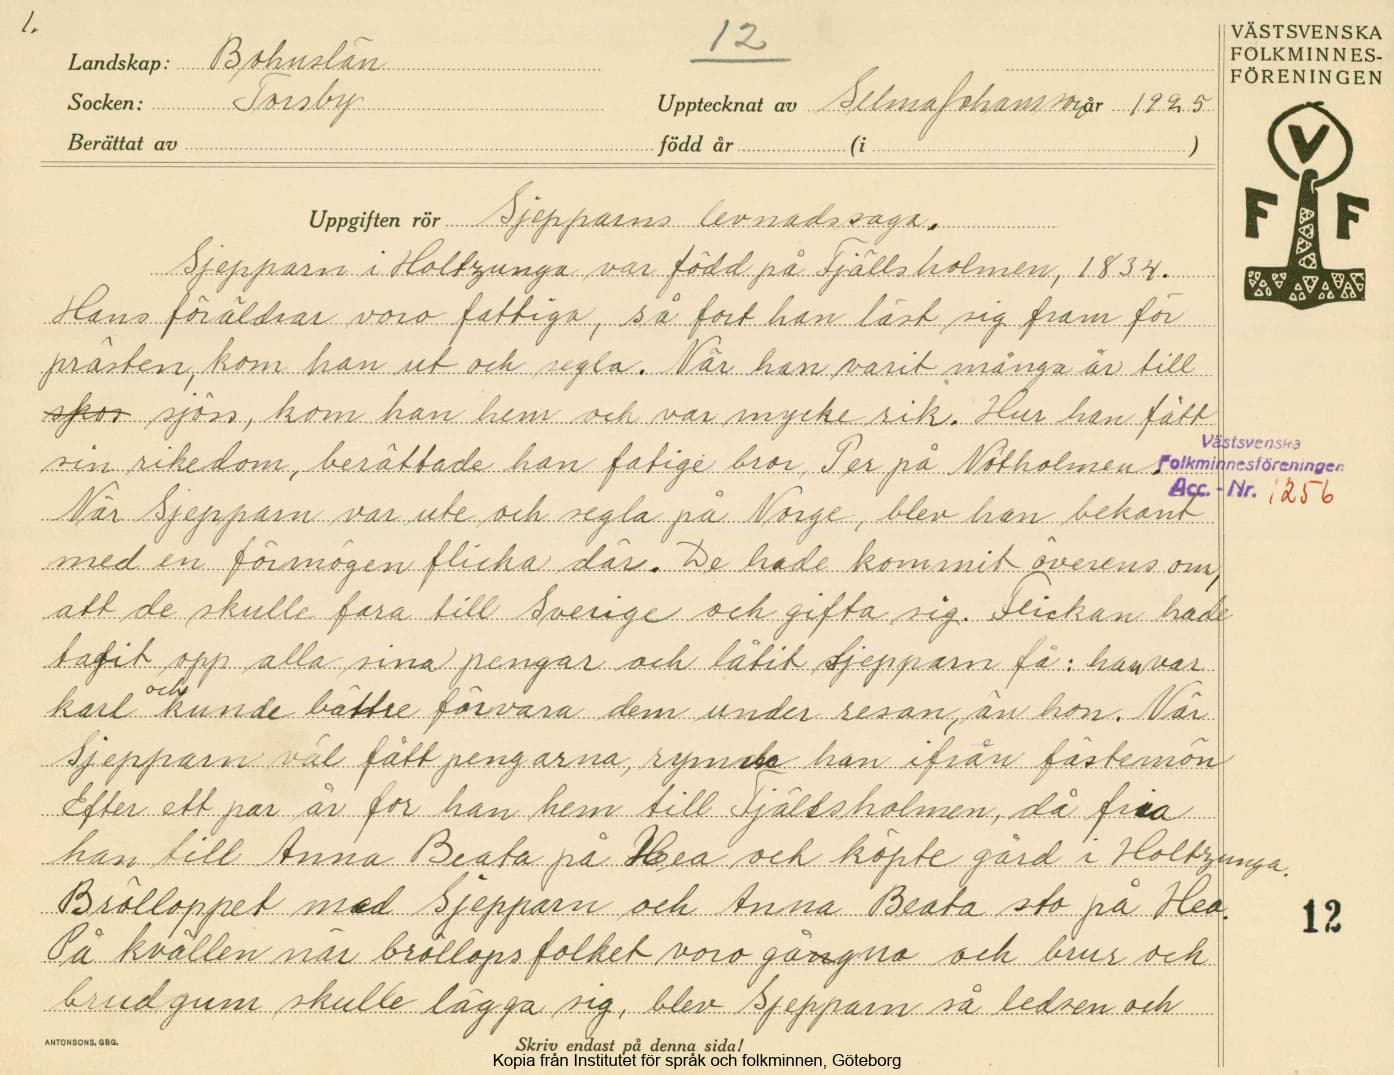 1.
12
VÄSTSVENSKA
FOLKMINNES-
FÖRENINGEN
Landskap: Bohuslän
Socken: Torsby
Upptecknat av Selma Johansson år 1925
Berättat av född år (i )
V
F F
Uppgiften rör Sjepparns levnadssaga.
Sjepparn i Holtzunga var född på Tjällsholmen, 1834.
Hans föräldrar voro fattiga, så fort han läst sig fram för
prästen, kom han ut och segla. När han varit många år till
skos sjöss, kom han hem och var mycke rik. Hur han fått
sin rikedom, berättade han fatige bror, Per på Nötholmen.
När Sjepparn var ute och segla på Norge, blev han bekant
med en förmögen flicka där. De hade kommit överens om,
att de skulle fara till Sverige och gifta sig. Flickan hade
tagit opp alla sina pengar och låtit Sjepparn få: han var
karl och kunde bättre förvara dem under resan, än hon. När
Sjepparn väl fått pengarna, rymde han ifrån fästemön
Efter ett par år for han hem till Tjällsholmen, då fria
han till Anna Beata på Hea och köpte gård i Holtzunga.
Brölloppet med Sjepparn och Anna Beata sto på Hea.
På kvällen när bröllopsfolket voro gångna och brur och
brudgum skulle lägga sig, blev Sjepparn så ledsen och
Västsvenska
Folkminnesföreningen
Acc. - Nr. 1256
12
ANTONSONS, GBG.
Skriv endast på denna sida!
Kopia från Institutet för språk och folkminnen, Göteborg